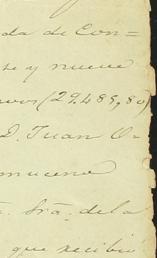 da de Con=
te y nueve
ivos (29.489,80)
D. Juan O-
omuceno
a. Sra. de la
que recibio